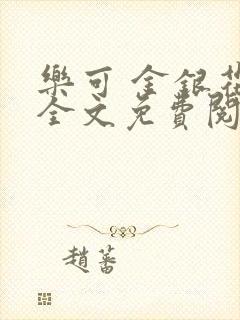 樂可 金銀花
全文免費閱
趙蕃